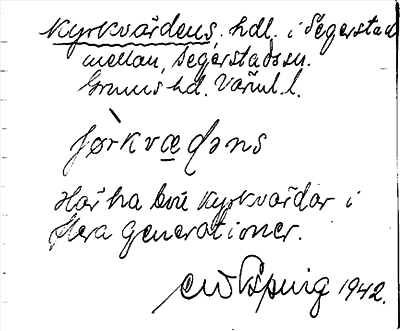 Kyrkvärdens, hdl. i Segerstad
mellan, Segerstadssn.
Grums hd. Värml. l.
jørkvæɖəns
Har ha kyrkvärdar i
flera generationer.
1942.